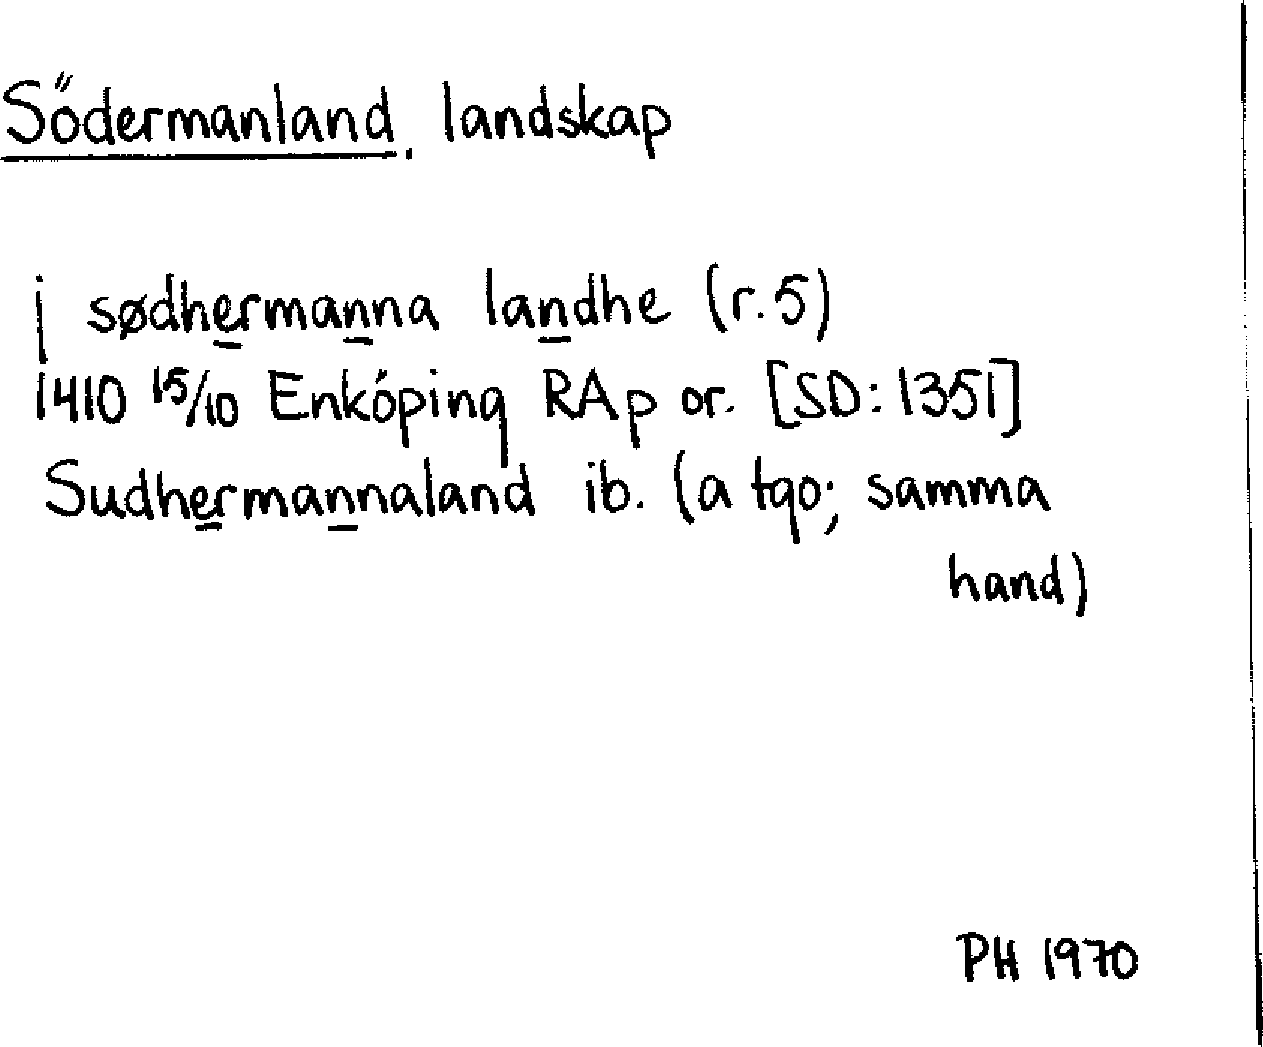 Södermanland, landskap
j sødhermanna landhe (r. 5)
1410 15/10 Enköping RAp or. [SD: 1351]
Sudhermannaland ib. (a tgo; samma
hand)
PH 1970